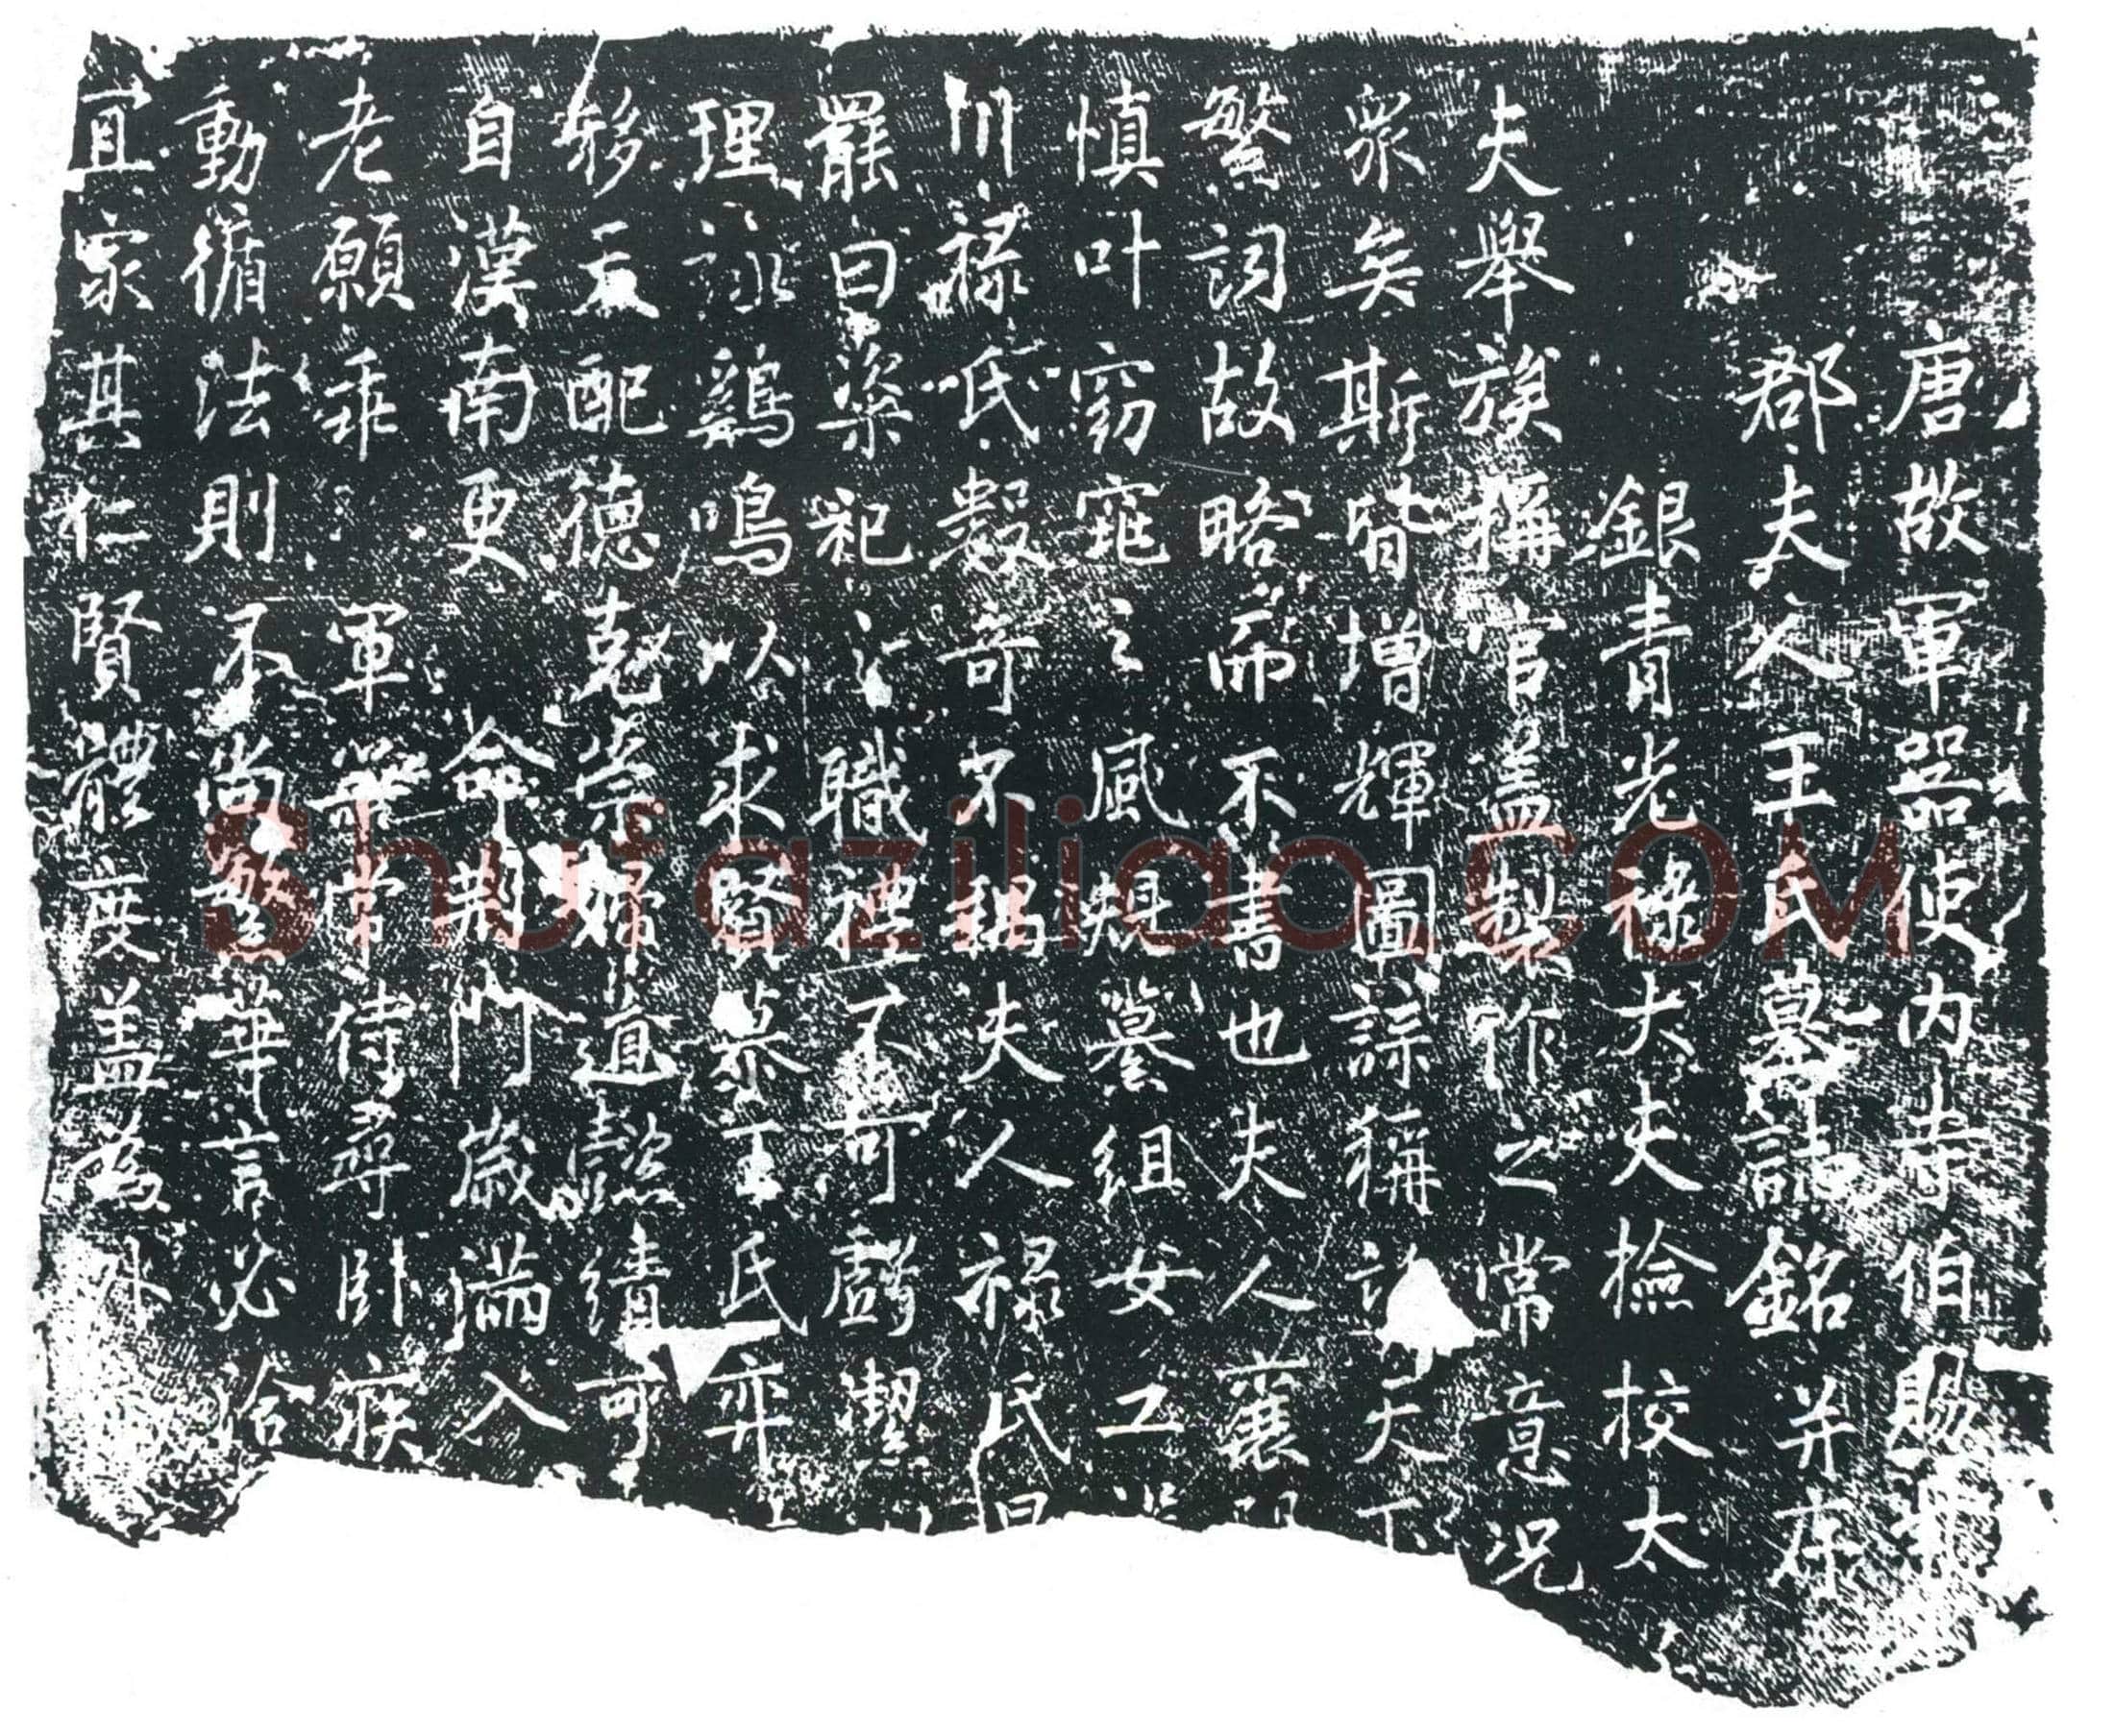 唐故軍器使內寺伯賜
郡夫人王氏墓誌銘并序
銀青光祿大夫檢校太
夫舉族稱官蓋製作之常意況
眾矣斯皆增輝圖諜稱於天下
繁詞故略而不書也夫人襄陽
慎叶窈窕之風規纂組女工
川祿氏數奇不耦夫人祿氏
罷曰粢祀之職禮不可虧潔
理詠鷄鳴以求賢慕王氏弈
移天配德克崇婦道懿績可
自漢南更命荊門歲滿入
老願乖軍無嘗侍尋卧疾
動循法則不尚繁華言必洽
宜家其仁賢體度蓋為外
Shufaziliao.COM